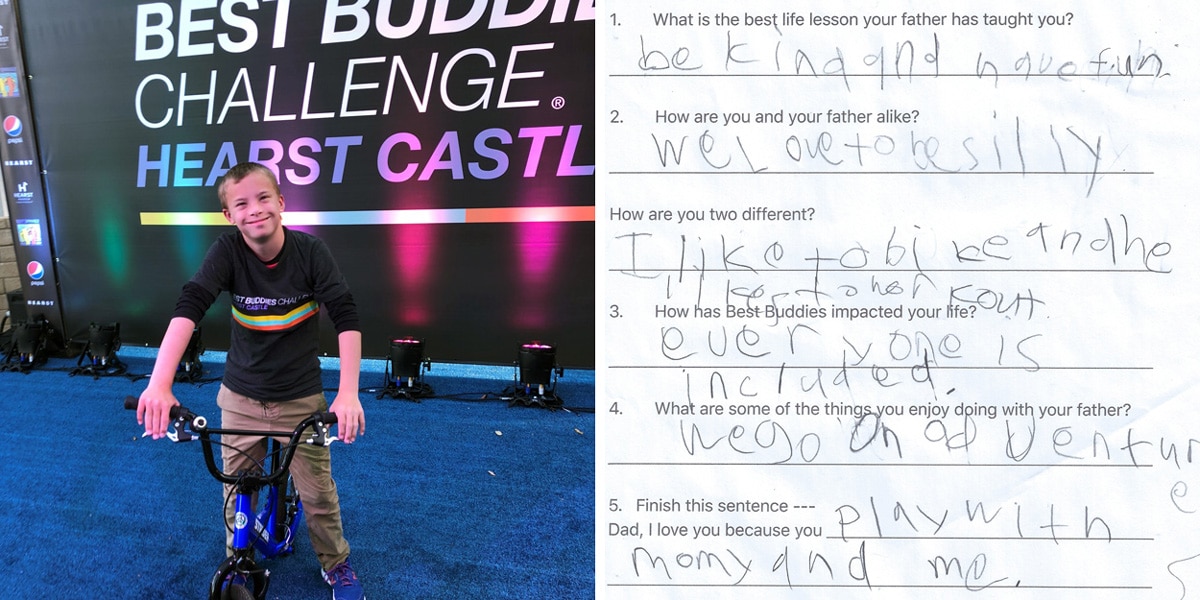 BEST BUDDI
CHALLENGE®
HEARST CASTL
pepsi
HEARST
HEARST
pepsi
HEARST
ST BUDDIES CHALL
ST CASTLE
1. What is the best life lesson your father has taught you?
be kind and have fun
2. How are you and your father alike?
we Love to be silly
How are you two different?
I like to bike and he
likes to work out.
3. How has Best Buddies impacted your life?
every one is
included.
4. What are some of the things you enjoy doing with your father?
we go on adventur
e
5. Finish this sentence ---
Dad, I love you because you play with
momy and me.